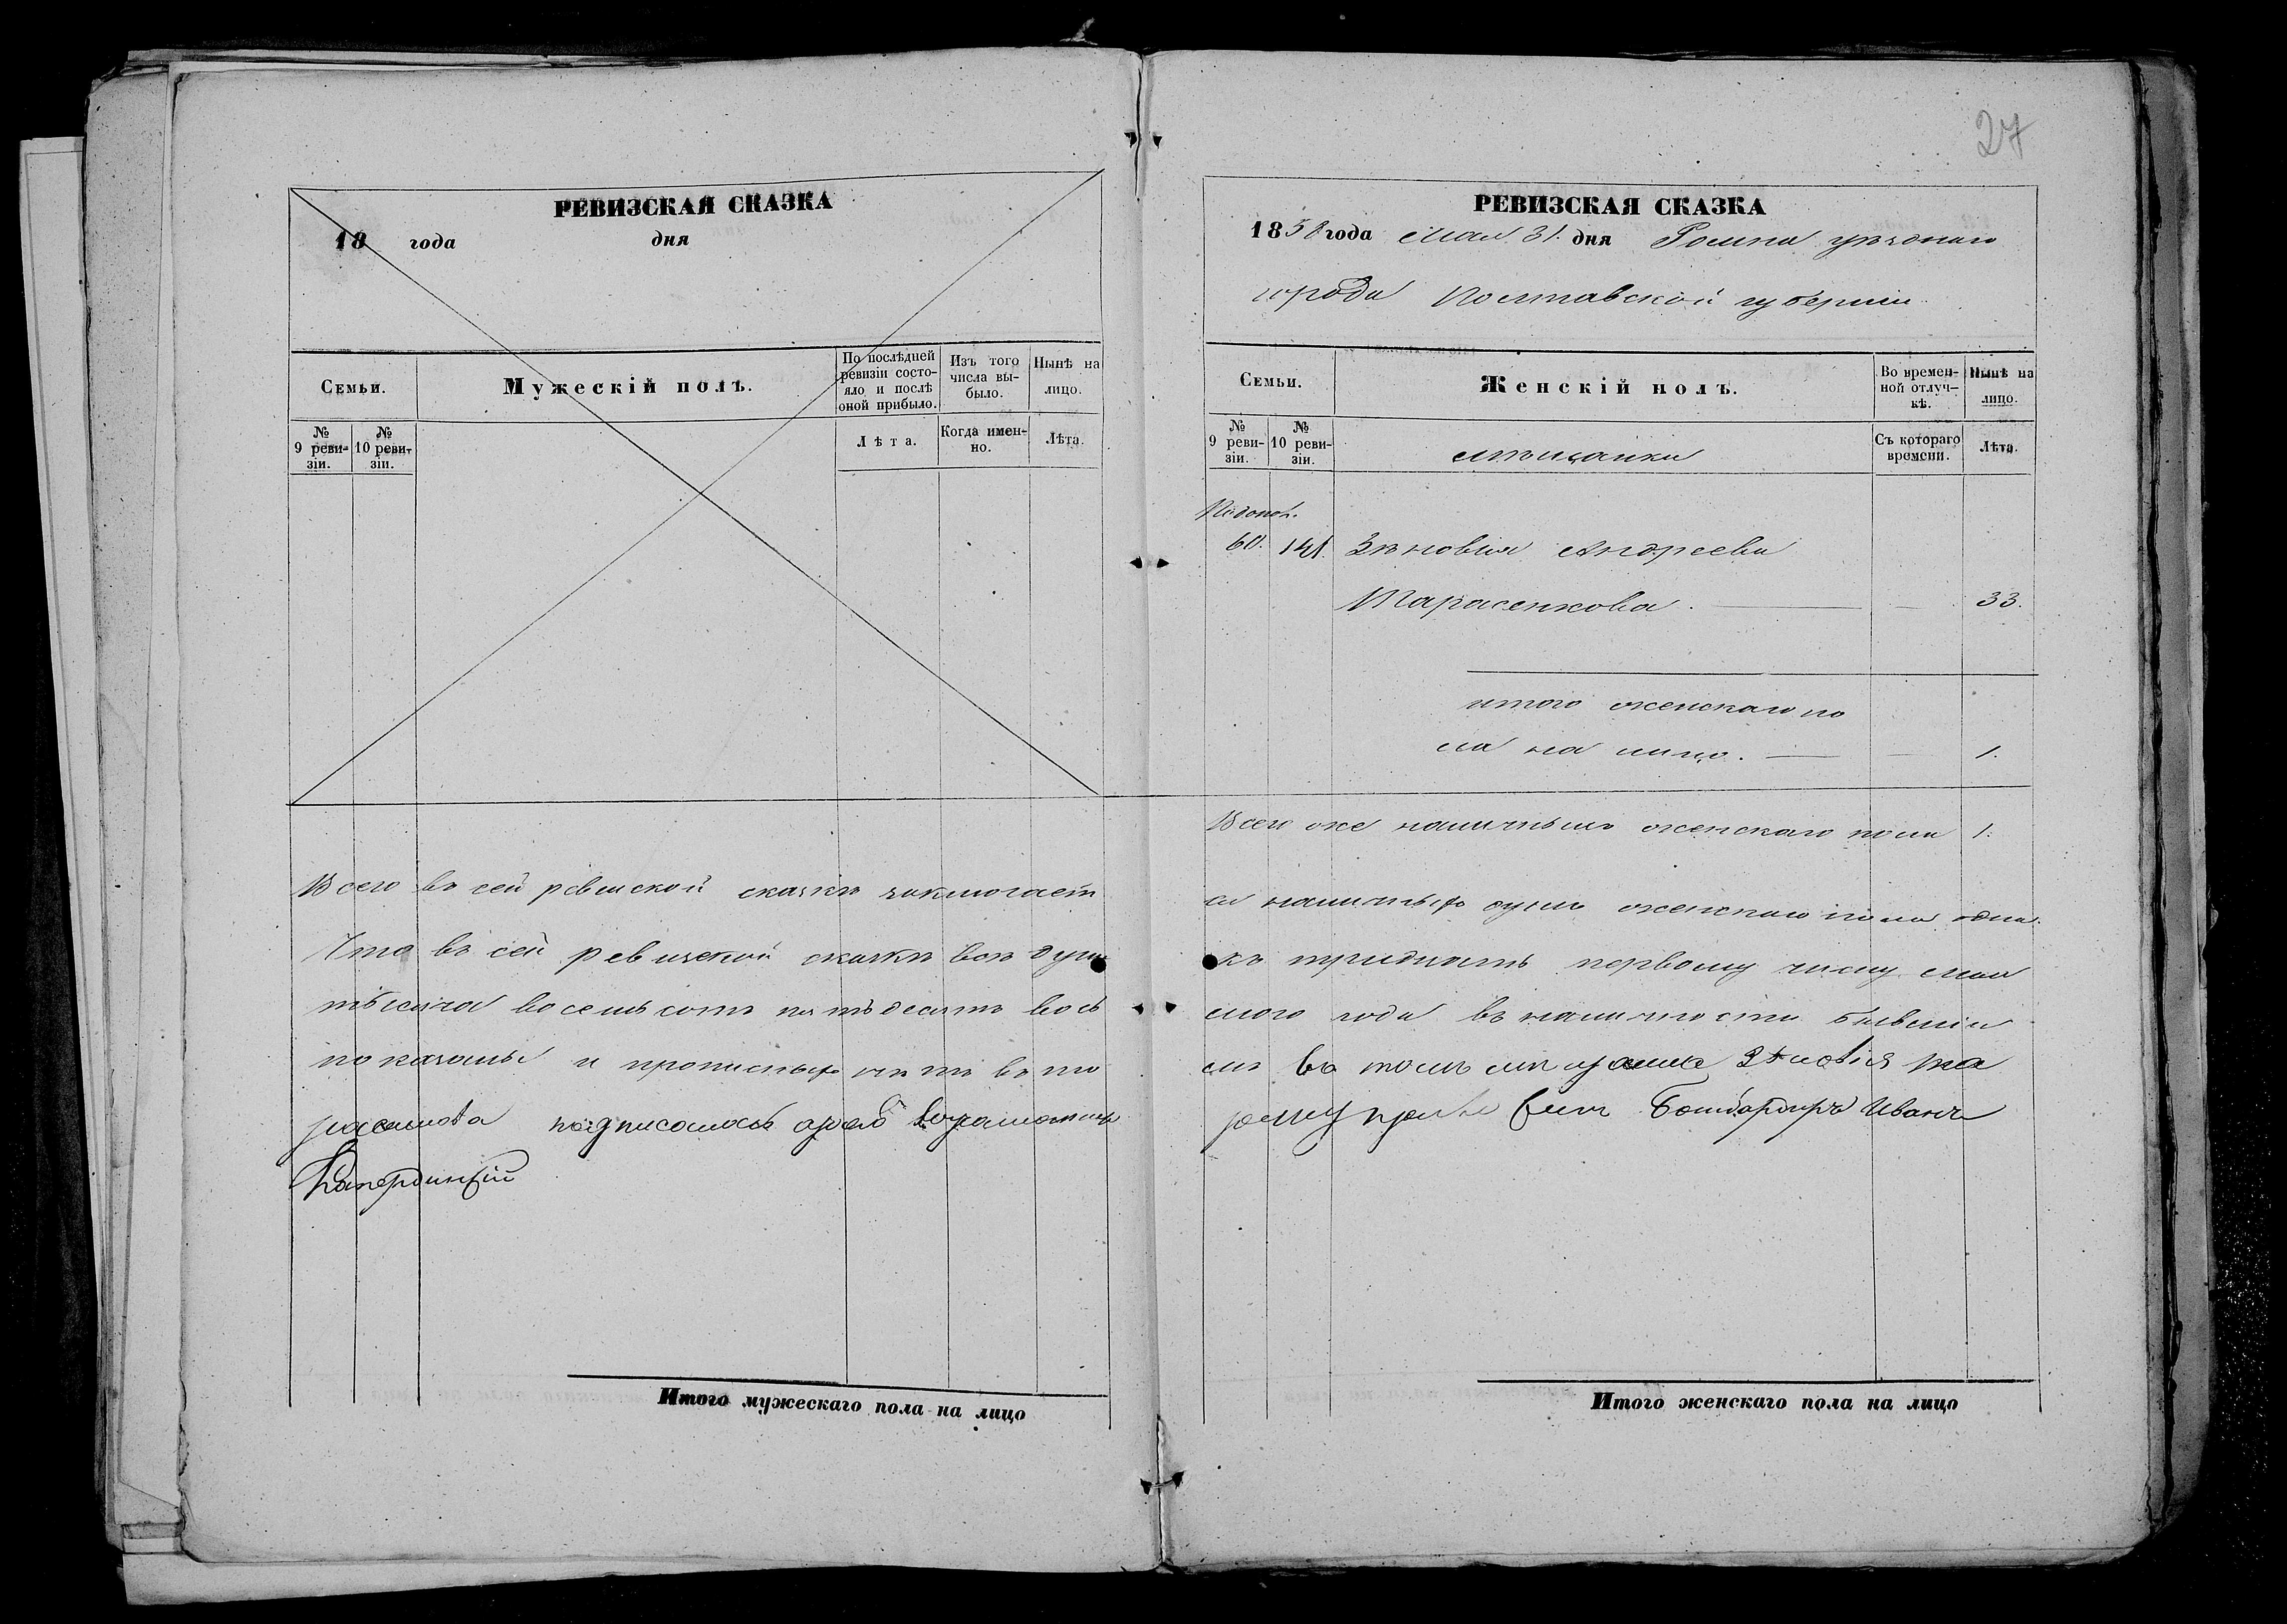 27
РЕВИЗСКАЯ СКАЗКА
18 года дня
Семьи.
Мужескій полъ.
По послѣдней ревизіи состо-
яло и послѣ
оной прибыло.
Изъ того
числа вы-
было.
Нынѣ на
лицо.
№
9 реви-
зіи.
№
10 реви-
зіи.
Лѣта.
Когда имен-
но.
Лѣта.
Всего въ сей ревиской сказкѣ заключает
Что въ сей ревизской сказкѣ всѣ души
тысяча восемьсотъ пятьдесятъ вось
показаны и прописныхъ нѣтъ въ то
расенкова подписалась
РЕВИЗСКАЯ СКАЗКА
1858 года Мая 31. дня Ромна уѣзднаго
города Полтавской губерніи
Семьи.
Женскій полъ.
Во времен-
ной отлуч-
кѣ.
Нынѣ на
лицо.
№
9 реви-
зіи.
№
10 реви-
зіи.
мѣщанки
Съ котораго
времени.
Лѣта.
60. 141. Зѣновія Андреева
Тарасенкова. 33.
итого женскаго по
ла на лицо. 1.
Всего же наличныхъ женскаго пола 1.
ся наличныхъ душъ женскаго пола одна.
къ тридцать первому числу мая
мого года въ наличности бывшія
мъ въ томъ мѣщанка Зѣновія Та
Бомбардиръ Иванъ
Итого мужескаго пола на лицо
Итого женскаго пола на лицо